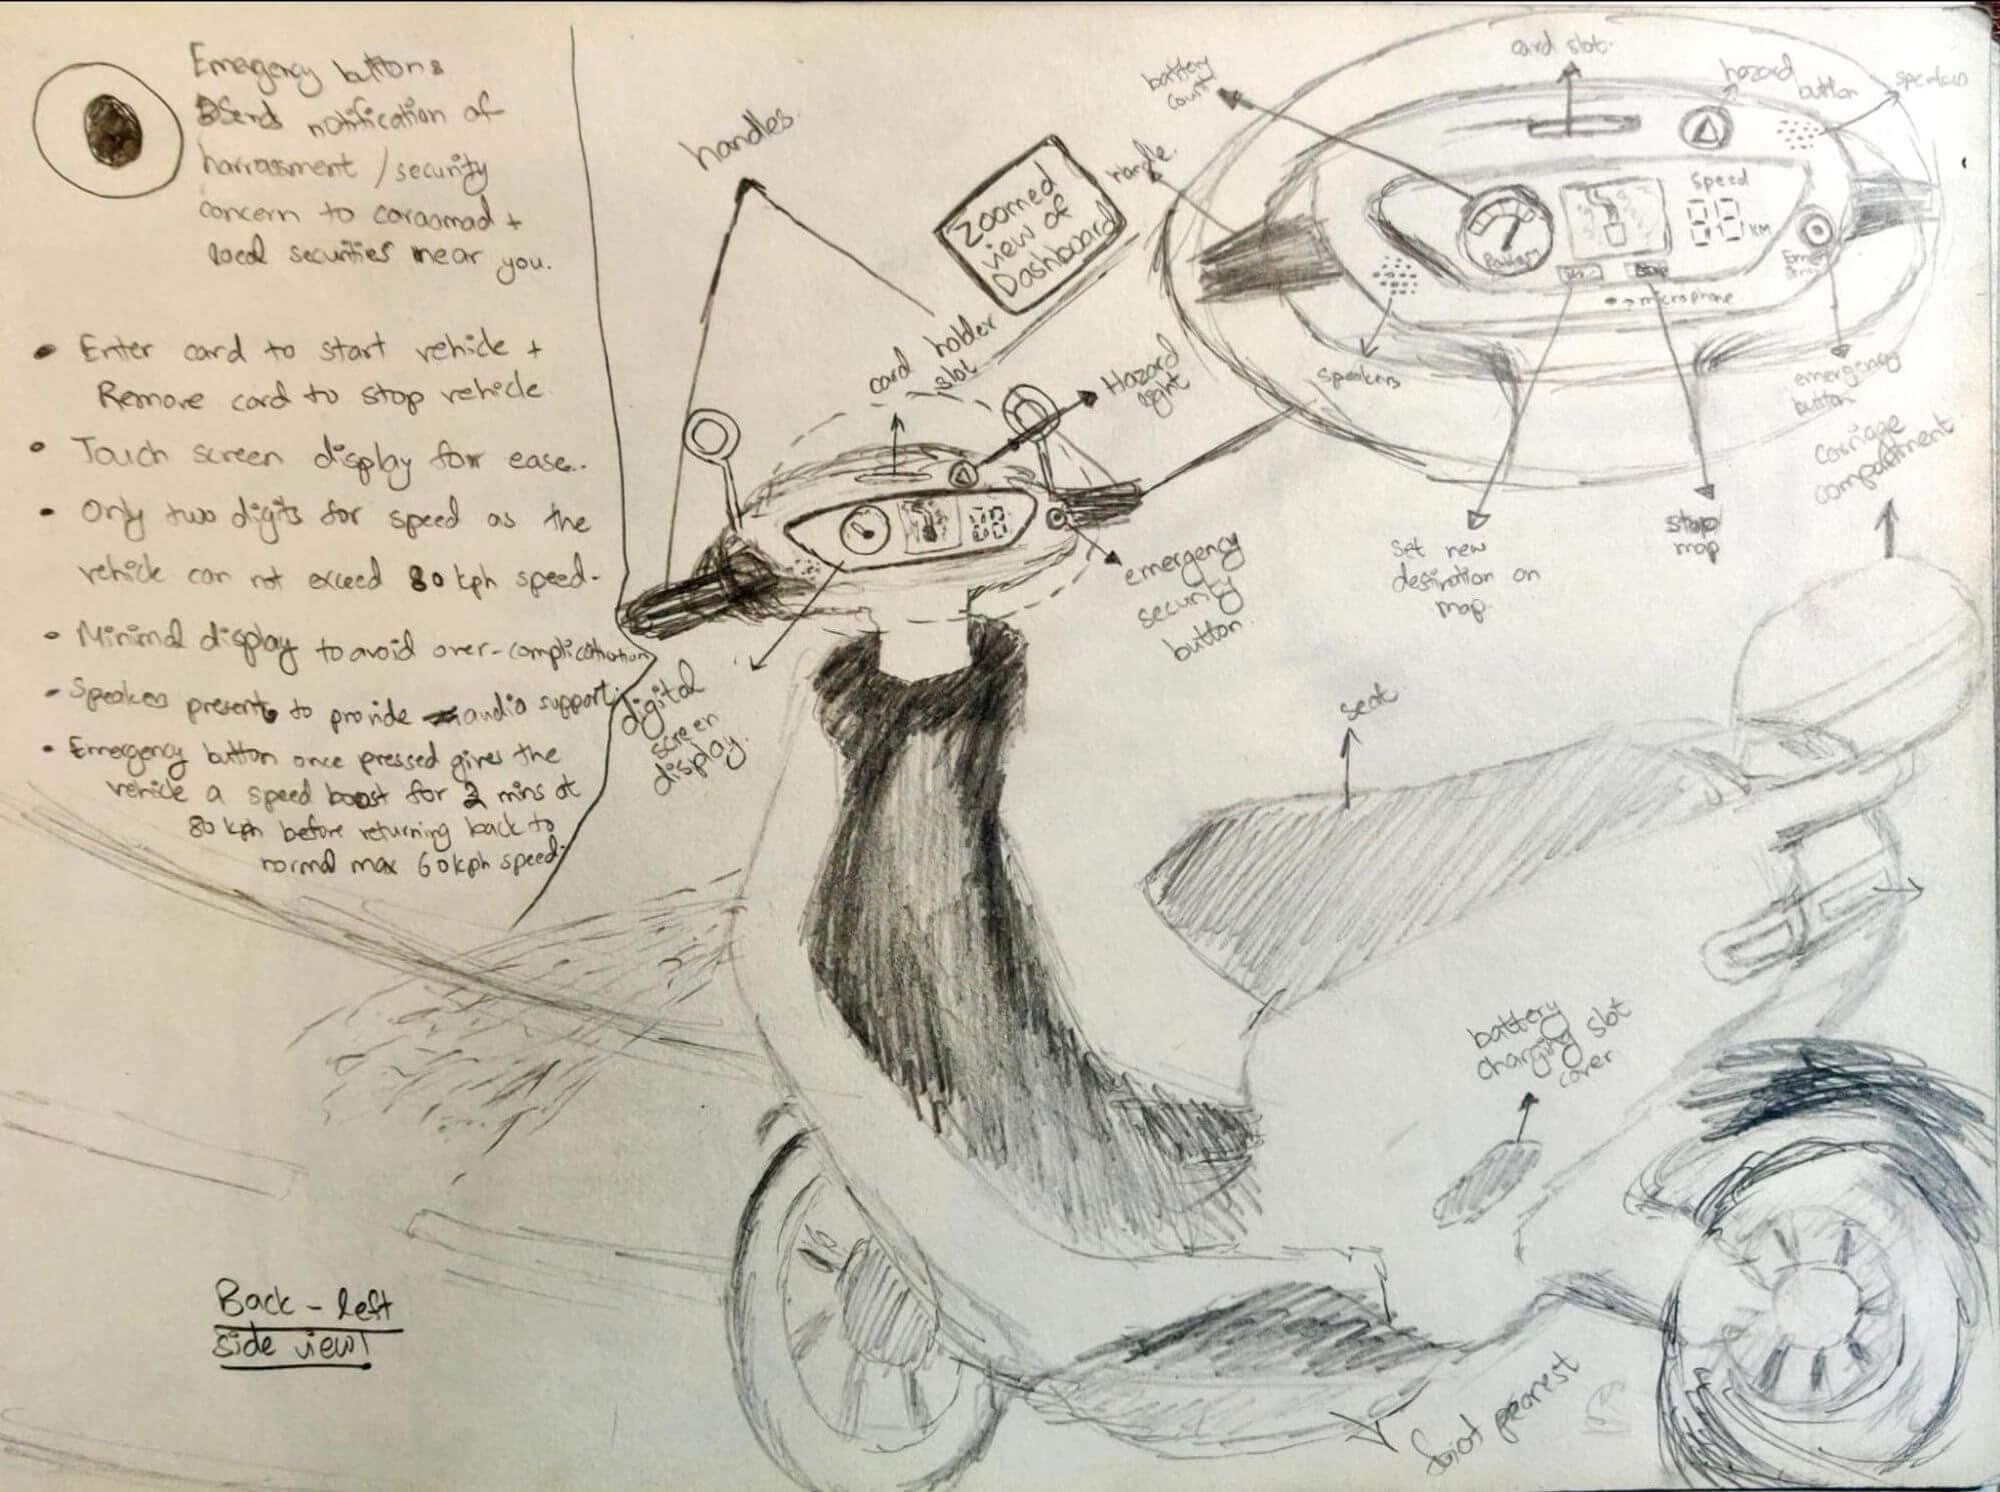 Emergency buttons
Sends notification of
harrasment / security
concern to caraomad +
local securities near you.
• Enter card to start vehicle +
Remove card to stop vehicle.
• Touch screen display for ease..
• Only two digits for speed as the
vehicle can not exceed 80 kph speed.
• Minimal display to avoid over-complication
• Speakers present to provide audio support.
• Emergency button once pressed gives the
vehicle a speed boost for 2 mins at
80 kph before returning back to
normal max 60kph speed.
handles.
Zoomed
view of
Dashboard
card holder
slot
Hazard
light
emergency
security
button.
digital
screen
display.
battery
count
card slot.
hazard
button
speakers
handle.
Battery
Speed
KM
Stop
microphone
speakers
emergency
button
set new
destination on
map.
stop
map
carriage
compartment
seat
battery
charging slot
cover
Back - left
side view